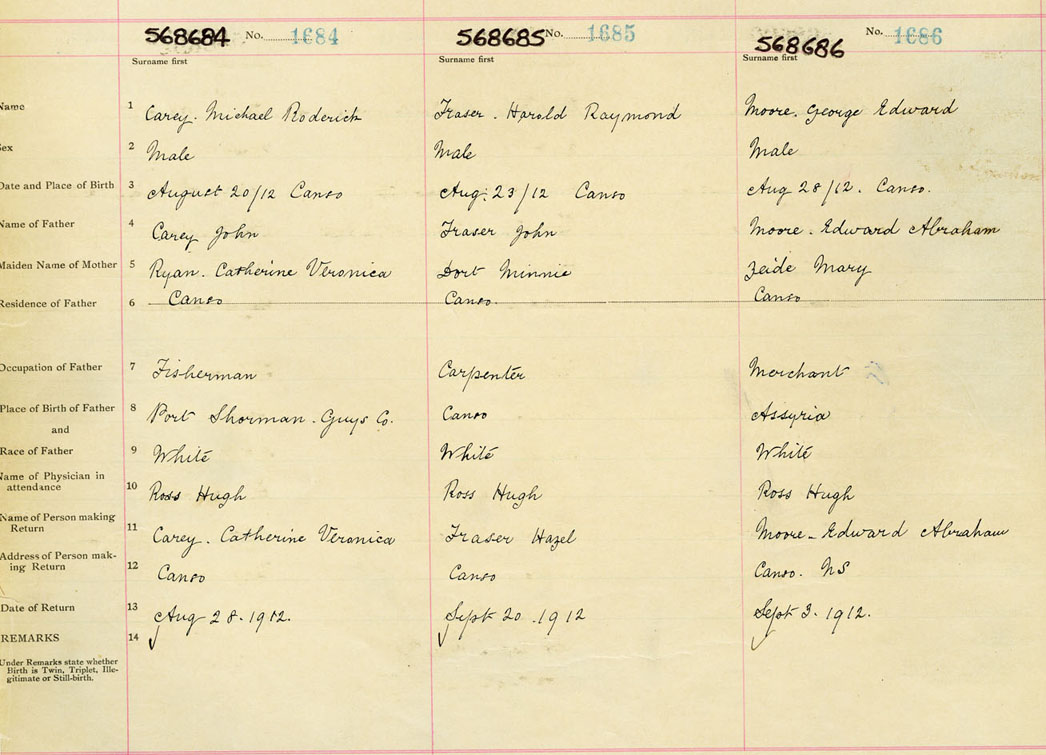 568684 No. 1684
568685 No. 1685
568686 No. 1686
Surname first
Surname first
Surname first
Name 1 Carey. Michael Roderick
Fraser. Harold Raymond
Moore. George Edward
Sex 2 Male
Male
Male
Date and Place of Birth 3 August 20/12 Canso
Aug: 23/12 Canso
Aug 28/12. Canso.
Name of Father 4 Carey John
Fraser John
Moore. Edward Abraham
Maiden Name of Mother 5 Ryan. Catherine Veronica
Dort Minnie
Zeide Mary
Residence of Father 6 Canso
Canso.
Canso
Occupation of Father 7 Fisherman
Carpenter
Merchant
Place of Birth of Father 8 Port Shorman. Guys Co.
Canso
Assyria
and
Race of Father 9 White
White
White
Name of Physician in
attendance 10 Ross Hugh
Ross Hugh
Ross Hugh
Name of Person making
Return 11 Carey. Catherine Veronica
Fraser Hazel
Moore - Edward Abraham
Address of Person mak-
ing Return 12 Canso
Canso
Canso. NS
Date of Return 13 Aug 28. 1912.
Sept 20. 1912
Sept 3. 1912.
REMARKS 14
Under Remarks state whether
Birth is Twin, Triplet, Ille-
gitimate or Still-birth.